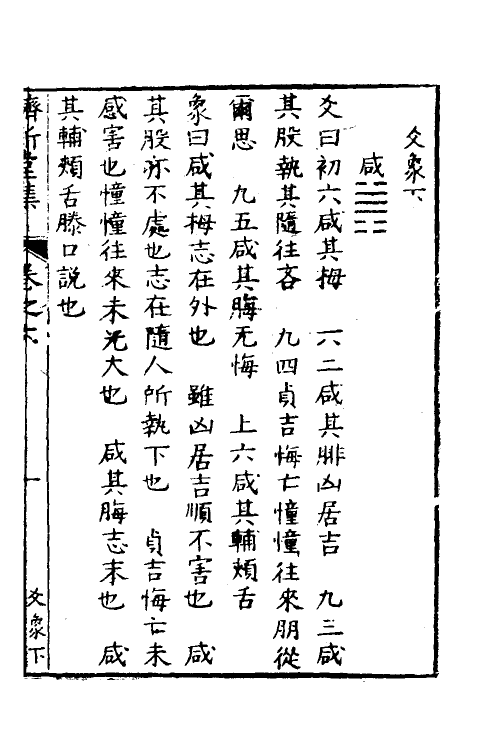 爻象下
咸䷞
爻曰初六咸其拇　六二咸其腓凶居吉　九三咸
其股執其隨往吝　九四貞吉悔亡憧憧往來朋從
爾思　九五咸其脢无悔　上六咸其輔頰舌
象曰咸其拇志在外也　雖凶居吉順不害也　咸
其股亦不處也志在隨人所執下也　貞吉悔亡未
感害也憧憧往來未光大也　咸其脢志末也　咸
其輔頰舌滕口說也
卷之六
一
爻象下